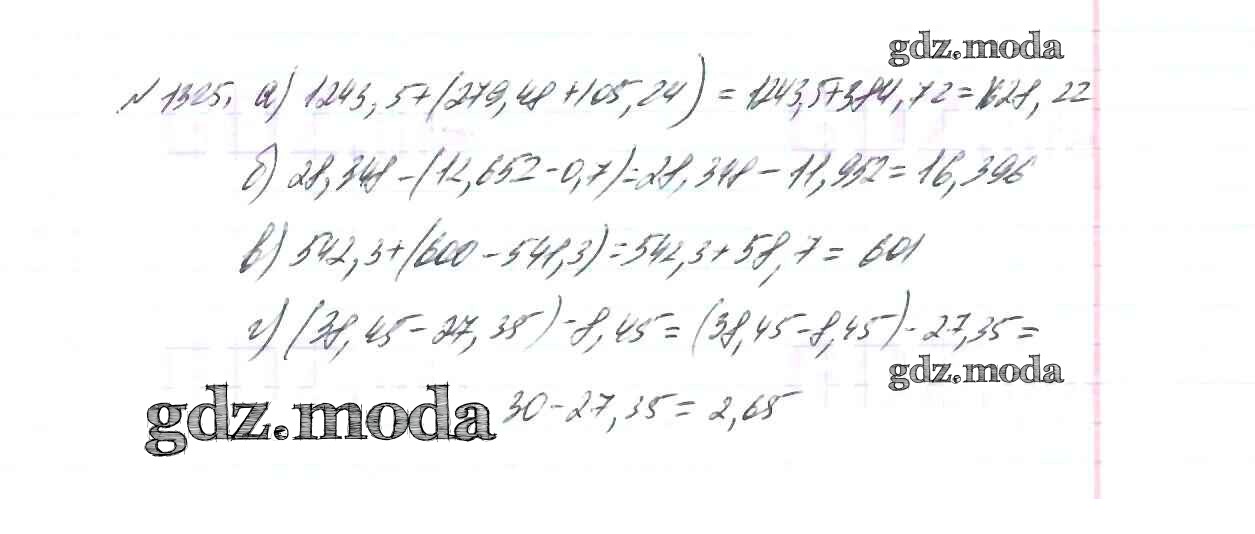 gdz.moda
№1325. а) 1243,5+(279,48+105,24) = 1243,5+384,72=1628,22
б) 28,348-(12,652-0,7)=28,348-11,952=16,396
в) 542,3+(600-541,3)=542,3+58,7= 601
г) (38,45-27,35)-8,45=(38,45-8,45)-27,35=
gdz.moda
gdz.moda 30-27,35=2,65